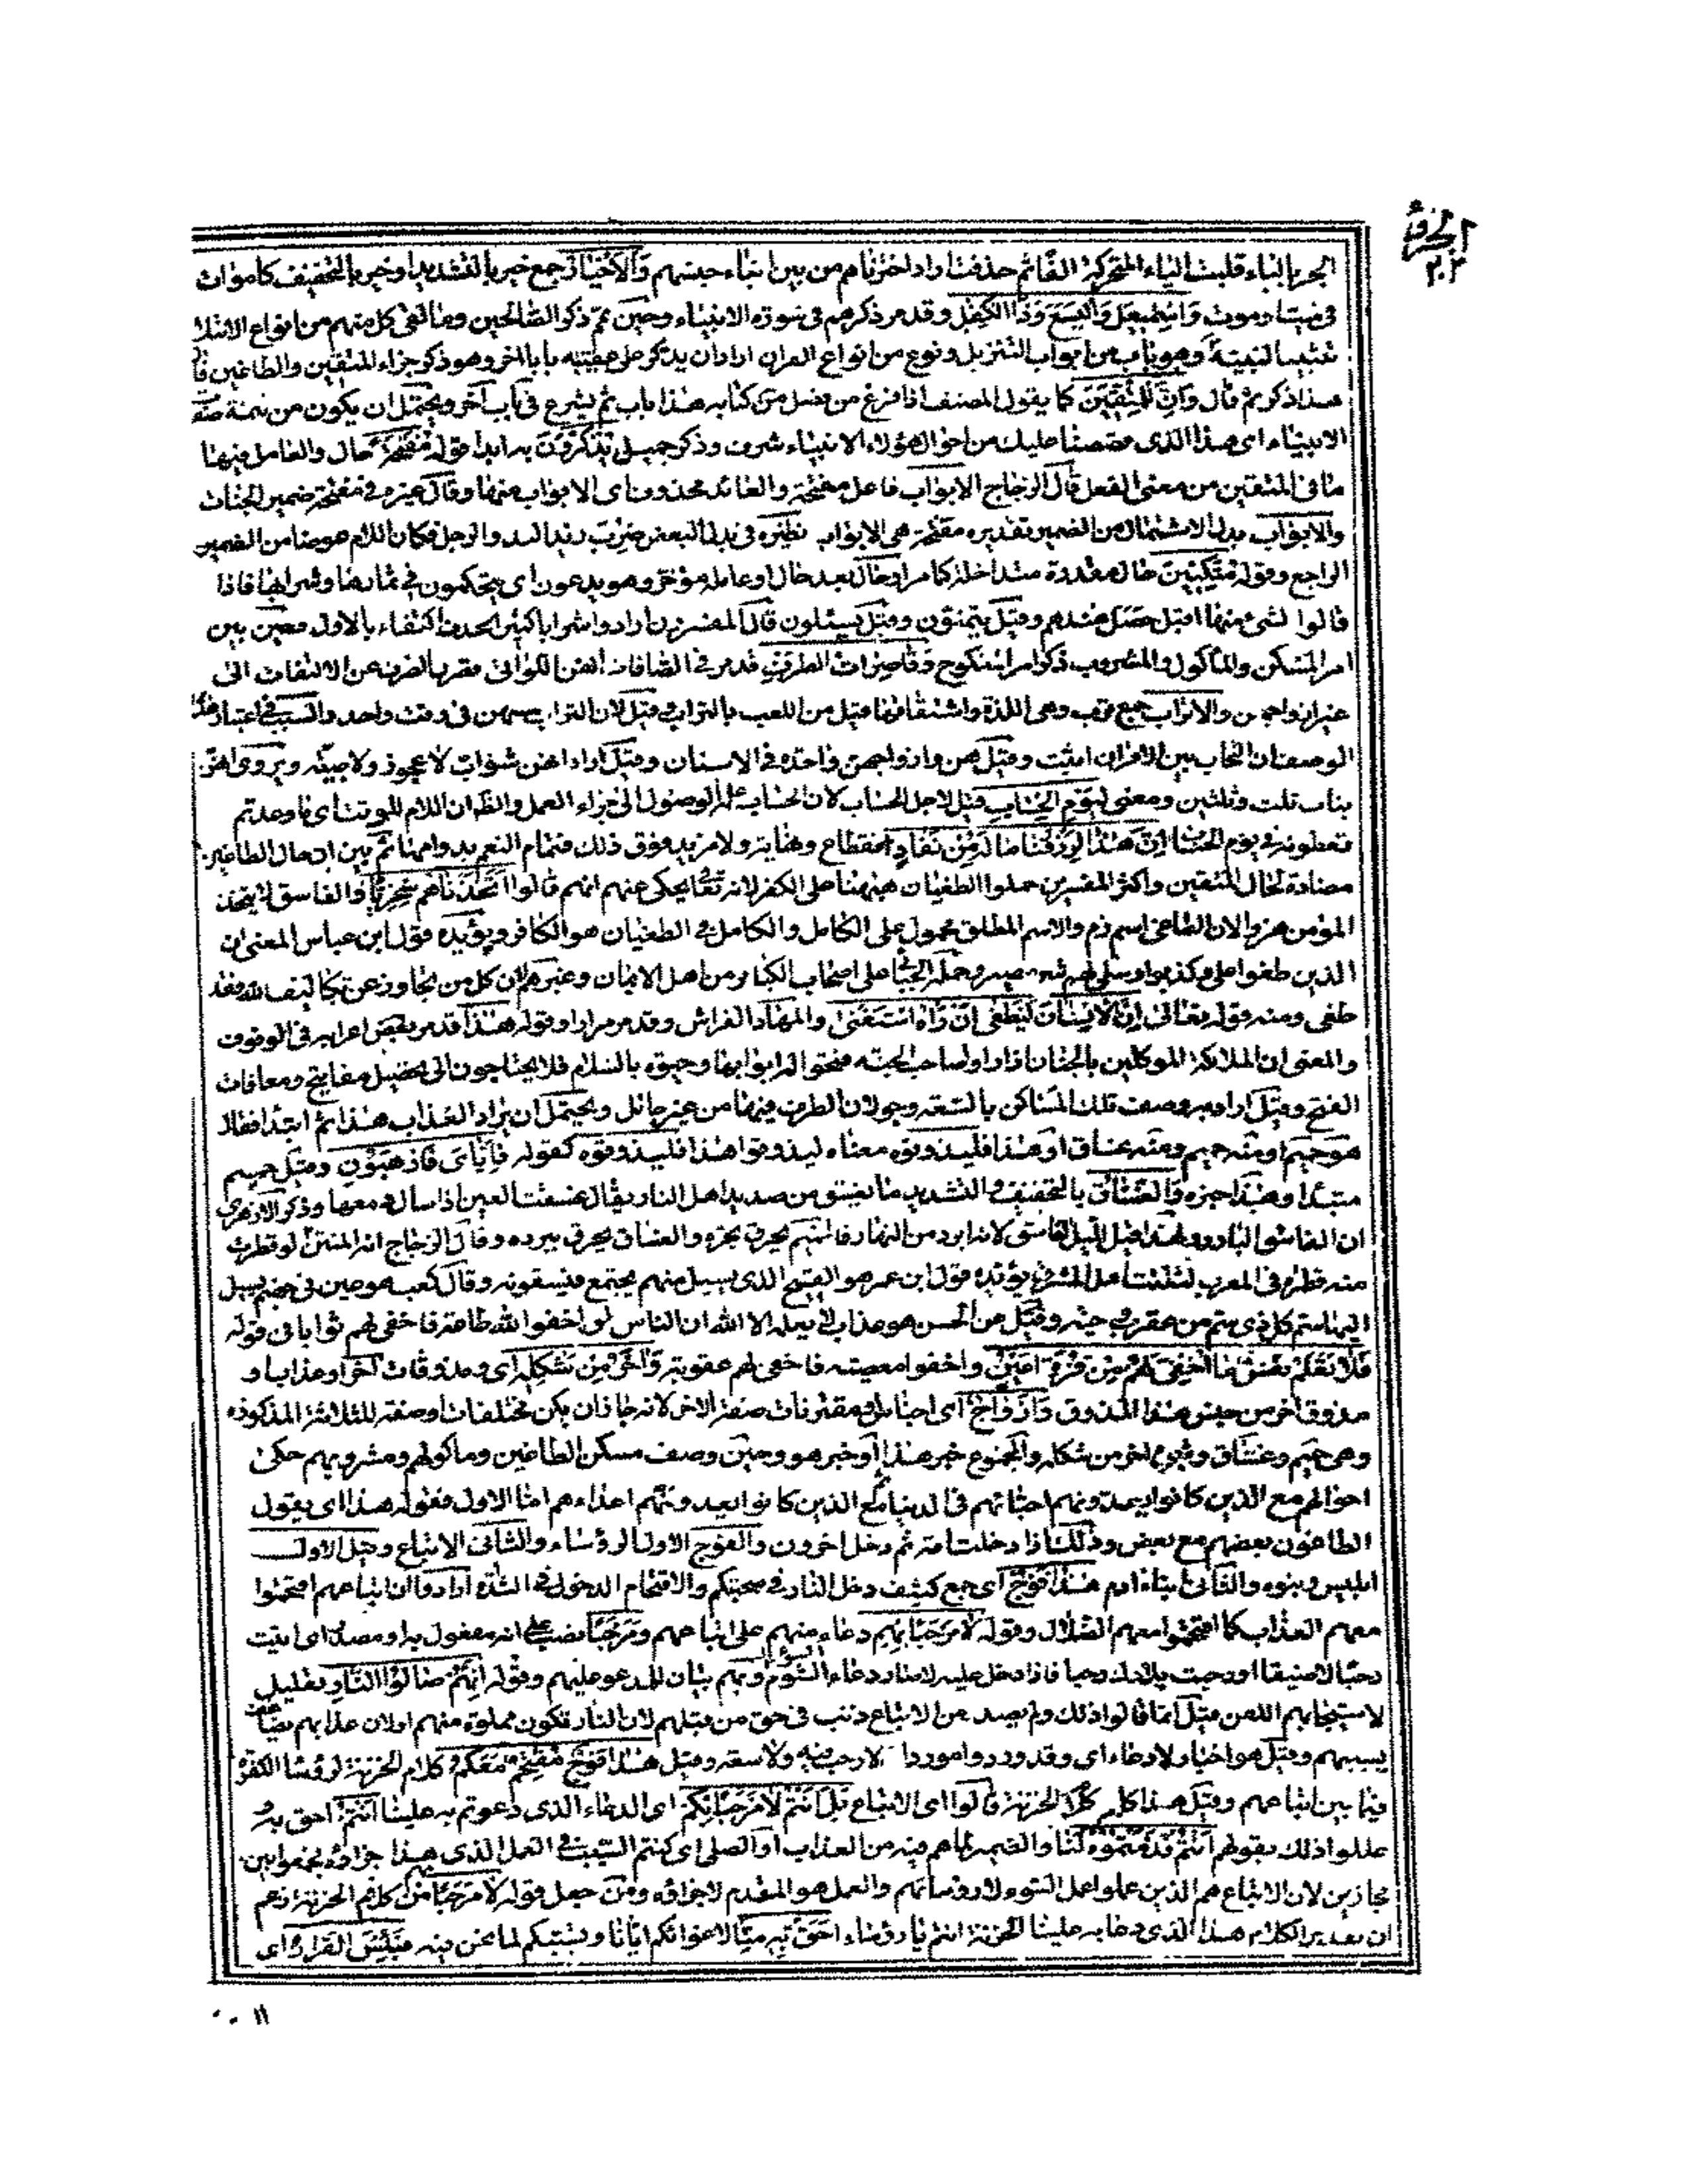 الجزؤ
٢٣
الجر بالياء قلبت الياء المتحركة الفا ثم حذفت اواد اخترناهم من بين ابناء جنسهم والاخيار جمع خير بالتشديد او خير بالتخفيف كاموات
فى ميت او ميت واسمعيل واليسع وذا الكفل وقد مر ذكرهم فى سورة الانبياء وحين تمم ذكر الصالحين وما لقى كل منهم من انواع الابتلاء
تثبيتا لنبيه وهو باب من ابواب التنزيل ونوع من انواع القران اراد ان يذكر على عقيبه بابا اخر وهو ذكر جزاء المتقين والطاغين قال
هذا ذكر ثم قال وان للمتقين كما يقول المصنف اذا فرغ من فصل من كتابه هذا باب ثم يشرع فى باب آخر ويحتمل ان يكون من تمة صفة
الانبياء اى هذا الذى قصصنا عليك من احوال هؤلاء الانبياء شرف وذكر جميل يذكرون به ابدا قوله مفتحة حال والعامل فيها
ما فى المتقين من معنى الفعل قال الزجاج الابواب فاعل مفتحة والعائد محذوف اى الابواب منها وقال غيره فى مفتحة ضمير الجنات
والابواب بدل الاشتمال من الضمير تقديره مفتحة هى الابواب نظيره فى بدل البعض ضرب زيد اليد والرجل فكان اللام عوضا من الضمير
الراجع وقوله متكئين حال مقدرة متداخلة كما مر او حال بعد حال او عامله مؤخر وهو يدعون اى يتحكمون فى ثمارها وشرابها فاذا
قالوا لشئ منها اقبل حصل عندهم وقيل يتمنون وقيل يسئلون قال المفسرون اراد وشراب كثير فحذف اكتفاء بالاول وحين بين
امر المسكن والماكول والمشروب ذكر امر المنكوح وقاصرات الطرف قد مر فى الصافات انهن اللواتى مقربا لضرف عن الالتفات الى
غير ازواجهن والاتراب جمع ترب وهى اللدة واشتقاقها قيل من اللعب بالتراب وقيل لان التراب مسهن فى وقت واحد والسبب فى اعتبار هذا
الوصف ان التحاب بين الاقران اثبت وقيل هن وازواجهن واحدة فى الاسنان وقيل اراد انهن شواب لا عجوز ولا صبية ويروى انهن
بنات ثلث وثلثين ومعنى ليوم الحساب قيل لاجل الحساب لان الحساب علة الوصول الى جزاء العمل والظاهر ان اللام للوقت اى ما وعدتم
تعطونه فى يوم الحساب ان هذا لرزقنا ما له من نفاد انقطاع وهناية ولا مزيد فوق ذلك فتمام النعم بدوامها ثم بين ان حال الطاغين
مضادة لحال المتقين واكثر المفسرين حملوا الطغيان هيهنا على الكفر لانه تعالى يحكى عنهم انهم قالوا اتخذناهم سخريا والفاسق لا يتخذ
المؤمن هزوا ولان الطاغى اسم ذم والاسم المطلق محمول على الكامل والكامل فى الطغيان هو الكافر ويؤيده قول ابن عباس المعنى ان
الذين طغوا على وكذبوا رسلى لهم شر مصير وحمله الجبائى على اصحاب الكبائر من اهل الايمان وغيرهم لان كل من تجاوز عن تكاليف الله فقد
طغى ومنه قوله تعالى ان الانسان ليطغى ان رآه استغنى والمهاد الفراش وقد مر مرارا وقوله هذا قد مر بعض اعرابه فى الوقوف
والمعنى ان الملائكة الموكلين بالجنان اذا راوا صاحب الجنة فتحوا له ابوابها وحيوه بالسلام فلا يحتاجون الى تحصيل مفاتيح ومعافات
الفتح وقيل اراد به وصف تلك المساكن بالسعة وجولان الطرف فيها من غير حائل ويحتمل ان يراد العذاب هذا ثم ابتدا فقال
هو حميم او منه حميم ومنه غساق او هذا فليذوقوه معناه ليذوقوا هذا فليذوقوه كقوله فاياى فارهبون وقيل حميم
مبتدا وهذا خبره والغساق بالتخفيف والتشديد ما يغسق من صديد اهل النار يقال غسقت العين اذا سال دمعها وذكر الازهرى
ان الغاسق البارد ولهذا قيل لليل الغاسق لانه ابرد من النهار فالحميم يحرق بحره والغساق يحرق ببرده وقال الزجاج انه المنتن لو قطرت
منه قطرة فى المغرب لنتنت اهل المشرق يؤيده قول ابن عمر هو القيح الذى يسيل منهم يجتمع فيسقونه وقال كعب هو عين فى جهنم يسيل
اليها سم كل ذى سم من عقرب وحية وقيل عن الحسن هو عذاب لا يعلمه الا الله ان الناس لو اخفوا لله طاعة فاخفى لهم ثوابا فى قوله
فلا تعلم نفس ما اخفى لهم من قرة اعين واخفوا معصية فاخفى لهم عقوبة وآخر من شكله اى ومذوقات اخر او عذاب او
مذوق اخر من جنس هذا المذوق وازواج اى اجناس ومقترنات صفة الاخر لانه جاز ان يكن مختلفات او صفة للثلاثة المذكورة
وهى حميم وغساق وشئ اخر من شكله والمجموع خبر هذا او خبر هو وحين وصف مسكن الطاغين وماكولهم ومشروبهم حكى
احوالهم مع الذين كانوا يعدونهم احبائهم فى الدنيا مع الذين كانوا يعدونهم اعداءهم اما الاول فقوله هذا اى يقول
الطاغون بعضهم مع بعض وذلك اذا دخلت امة ثم دخل اخرون والفوج الاول الرؤساء والثانى الاتباع وقيل الاول
ابليس وبنوه والثانى ابناء ادم هذا فوج اى جمع كثيف دخل النار فى صحبتكم والاقتحام الدخول فى الشدة ارادوا ان اتباعهم اقتحموا
معهم العذاب كما اقتحموا معهم الضلال وقوله لا مرحبا بهم دعاء منهم على اتباعهم ومرحبا نصب على انه مفعول به او مصدر اى اتيت
رحبا لا ضيقا او رحبت بلادك رحبا فاذا دخل عليه لا صار دعاء السوء وبهم بيان للمدعو عليهم وقوله انهم صالوا النار تعليل
لاستيجابهم اللعن وقيل انما قالوا ذلك ولم يصدر عن الاتباع ذنب فى حق من قبلهم لان النار تكون مملوة منهم او لان عذابهم يضاعف
بسببهم وقيل هو اخبار لا دعاء اى وقد وردوا موردا لا رحب فيه ولا سعة وقيل هذا فوج مقتحم معكم كلام الخزنة لرؤساء الكفرة
فيما بين اتباعهم وقيل هذا كله كلام الخزنة قالوا اى الاتباع بل انتم لا مرحبا بكم اى الدعاء الذى دعوتم به علينا انتم احق به و
عللوا ذلك بقولهم انتم قدمتموه لنا والضمير لما هم فيه من العذاب او الصلى اى كنتم السبب فى العمل الذى هذا جزاؤه فجمعوا بين
مجازين لان الاتباع هم الذين عملوا عمل السوء لا رؤساءهم والعمل هو المقدم لا جزاؤه ومن جعل قوله لا مرحبا بهم من كلام الخزنة زعم
ان تقدير الكلام هذا الذى دعا به علينا الخزنة انتم يا رؤساء احق به منا لاغوائكم ايانا وتسببكم لما نحن فيه فبئس القرار اى